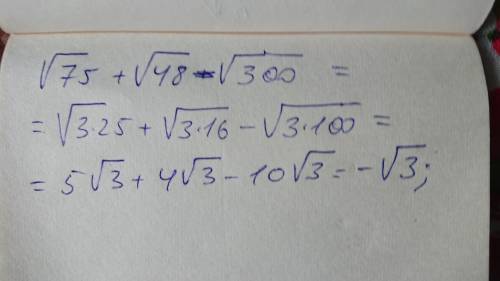 √75 + √48 - √300 =
= √3·25 + √3·16 - √3·100 =
= 5√3 + 4√3 - 10√3 = -√3;